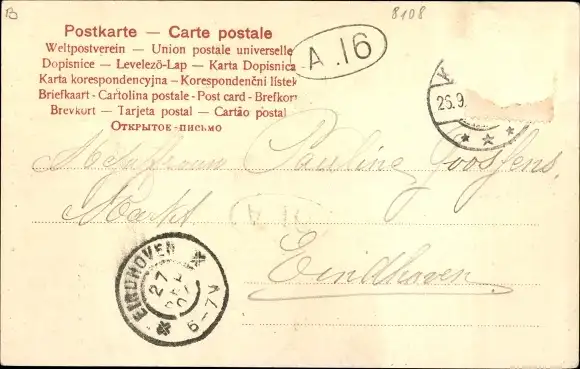 B
8108
Postkarte — Carte postale
Weltpostverein — Union postale universelle
Dopisnice — Levelező-Lap — Karta Dopisnica
Karta korespondencyjna - Korespondenční lístek
Briefkaart - Cartolina postale - Post card - Brefkort
Brevkort — Tarjeta postal — Cartão postal
Открытое-письмо
A.16
26.9
Mejuffrouw Pauline Goossens.
Markt
A 16
Eindhoven
EINDHOVEN
27
6-7V